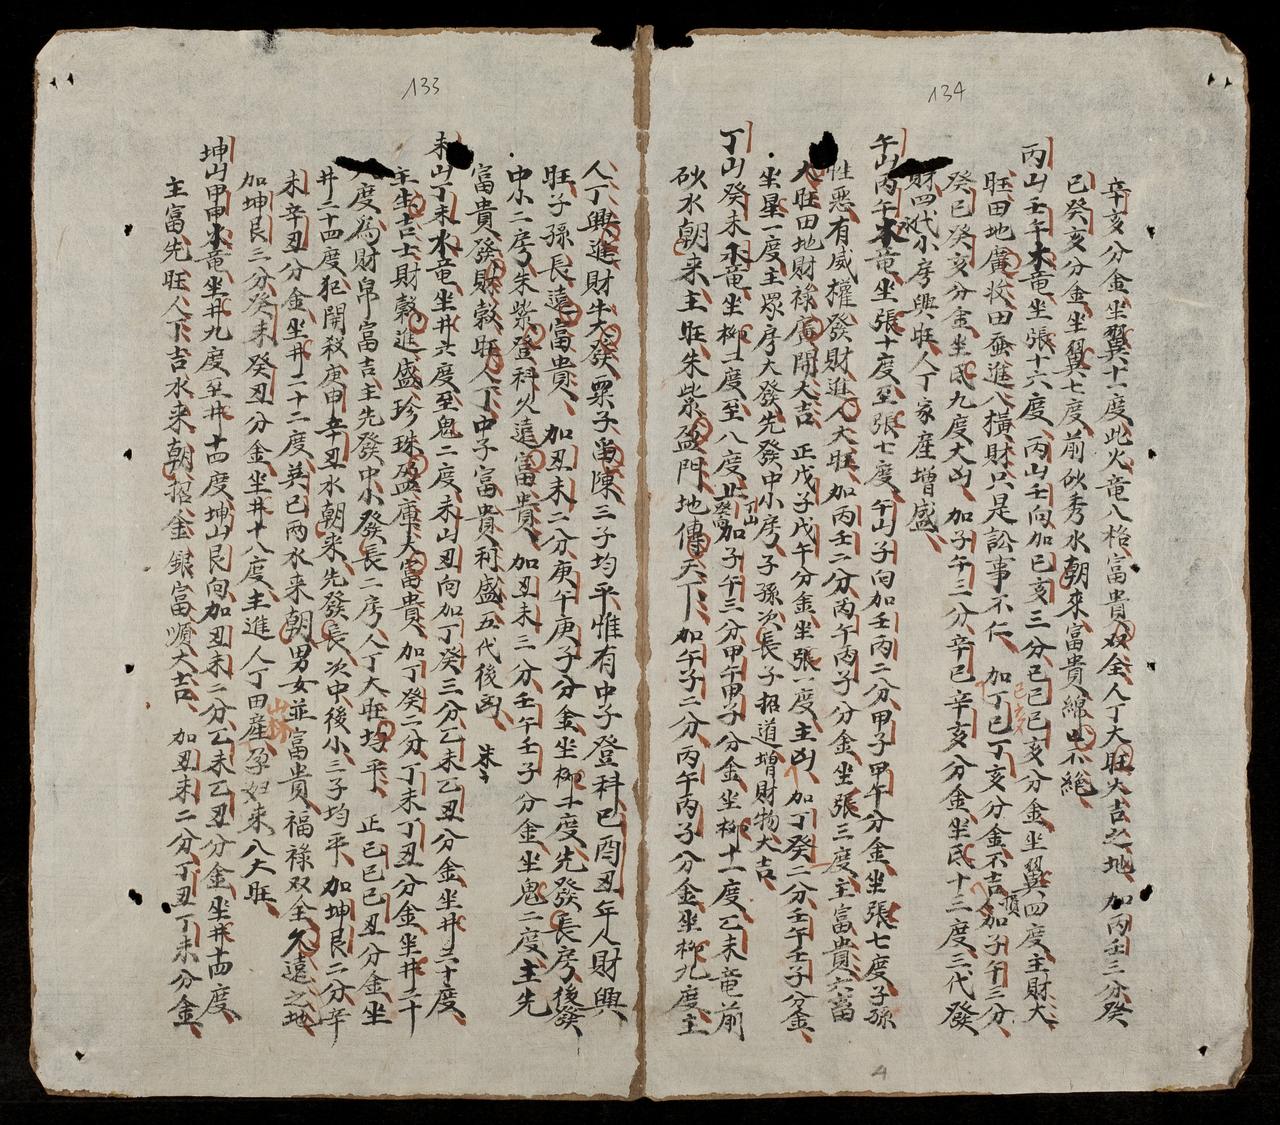 134
辛亥分金坐翼十一度此火竜八格富貴双全人丁大旺大吉之地 加丙壬三分癸
巳癸亥分金坐翼七度前砂秀水朝來富貴綿々不絶
丙山壬午木竜坐張十六度丙山壬向加巳亥三分己巳己亥分金坐翼四度主財大
旺田地廣收田蚕進八橫財只是訟事不仁 加丁巳丁亥分金不吉 加子午三分
癸巳癸亥分金坐氐九度大凶 加子午三分辛巳辛亥分金坐氐十二度三代發
財四代小房興旺人丁家産增盛
午山丙午木竜坐張十度至張七度午山子向加壬丙二分甲子甲午分金坐張七度子孫
性惡有威權發財進人大旺加丙壬二分丙午丙子分金坐張三度主富貴六畜
大旺田地財祿廣開大吉 正戊子戊午分金坐張一度主凶 加丁癸二分壬午壬子分金
坐星一度主眾房大發先發中小房子孫次長子招道增財物大吉
丁山癸未水竜坐柳十度至八度止丁山癸向加子午三分甲午甲子分金坐柳十一度乙未竜前
砂水朝來主旺朱紫盈門地傳天下 加午子二分丙午丙子分金坐柳九度主
133
人丁興進財牛大發眾子當陳三子均平惟有中子登科巳酉丑年人財興
旺子孫長遠富貴 加丑未二分庚午庚子分金坐柳十度先發長房後發
中小二房朱紫登科久遠富貴 加丑未三分壬午壬子分金坐鬼二度主先
富貴發財穀旺人丁中子富貴利盛五代後凶
未山丁未水竜坐井六度至鬼二度未山丑向加丁癸三分乙未乙丑分金坐井三十度
主生吉士財穀進盛珍珠盈庫大富貴 加丁癸二分丁未丁丑分金坐井二十
八度為財帛富吉主先發中小發長二房人丁大旺均平 正己巳己丑分金坐
井二十四度犯開殺庚申辛丑水朝來先發長次中後小三子均平 加坤艮二分辛
未辛丑分金坐井二十二度巽巳兩水來朝男女並富貴福祿双全久遠之地
加坤艮三分癸未癸丑分金坐井十八度主進人丁田産孕妇來八大旺
坤山甲申水竜坐井九度至井十四度坤山艮向加丑未二分乙未乙丑分金坐井十四度
主富先旺人丁吉水來朝招金銀富順大吉 加丑未二分丁丑丁未分金